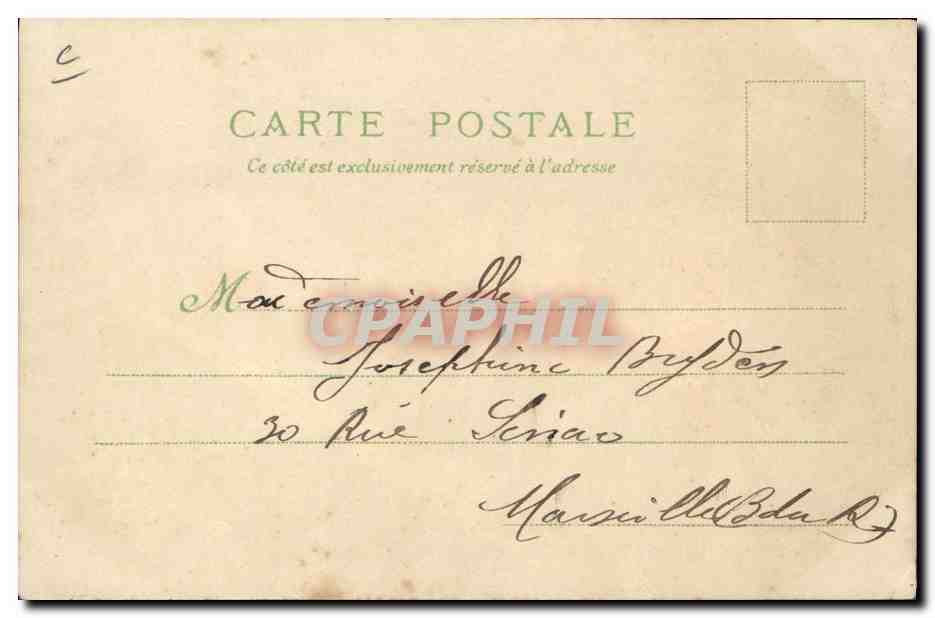 c
CARTE POSTALE
Ce côté est exclusivement réservé à l'adresse
Mademoiselle
CPAPHIL
Josephine
30 Rue
Marseille (B du R)